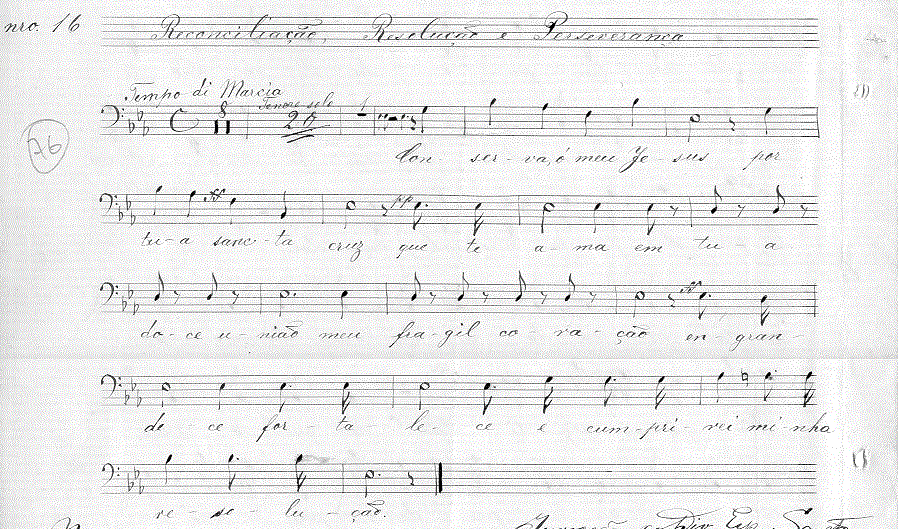 nro. 16 Reconciliação, Resolução e Perseverança
Tempo di Marcia
Tenore solo
8 20 1
76
Con - ser - va, ó meu Je - sus por
tu - a sanc - ta cruz que te a - ma em tu - a
do - ce u - nião meu fra - gil co - ra - ção en - gran -
de - ce for - ta - le - ce e cum - pri - rei mi - nha
re - so - lu - ção.